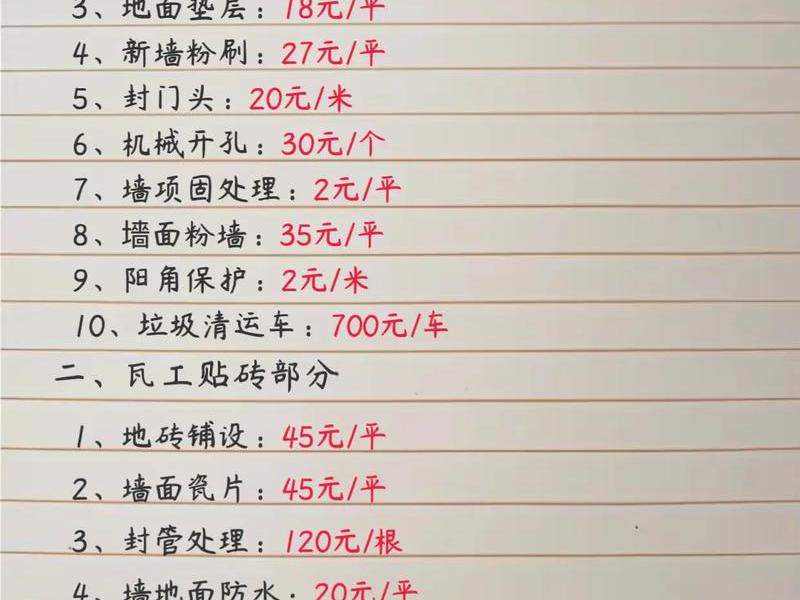 3、地面垫层：18元/平
4、新墙粉刷：27元/平
5、封门头：20元/米
6、机械开孔：30元/个
7、墙项固处理：2元/平
8、墙面粉墙：35元/平
9、阳角保护：2元/米
10、垃圾清运车：700元/车
二、瓦工贴砖部分
1、地砖铺设：45元/平
2、墙面瓷片：45元/平
3、封管处理：120元/根
4、墙地面防水：20元/平